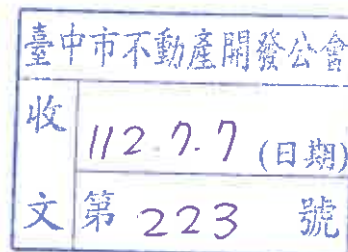 臺中市不動產開發公會
收文
112.7.7(日期)
第223號